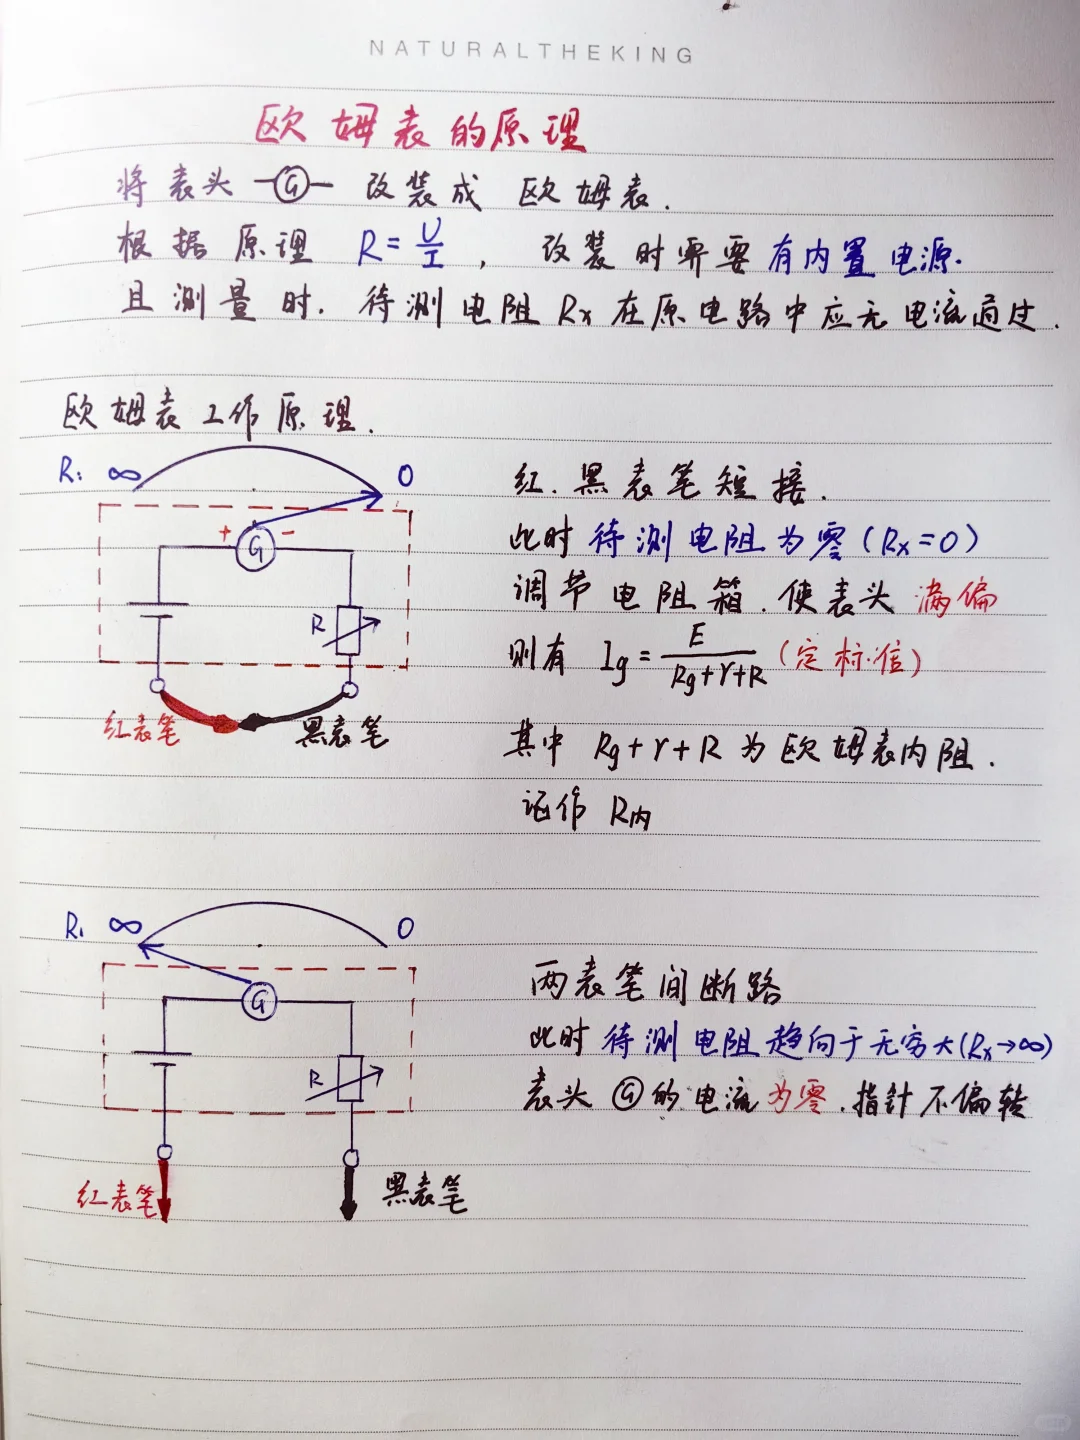 NATURALTHEKING
欧姆表的原理
将表头 G 改装成 欧姆表.
根据原理 R=U/I, 改装时需要有内置电源.
且测量时. 待测电阻Rx在原电路中应无电流通过.
欧姆表工作原理.
R: ∞ 0
+ G -
R
红表笔 黑表笔
红.黑表笔短接.
此时待测电阻为零(Rx=0)
调节电阻箱.使表头满偏
则有 Ig=E/(Rg+r+R) (定标.值)
其中 Rg+r+R 为欧姆表内阻.
记作 R内
R: ∞ 0
G
R
红表笔 黑表笔
两表笔间断路
此时待测电阻趋向于无穷大(Rx→∞)
表头G的电流为零.指针不偏转